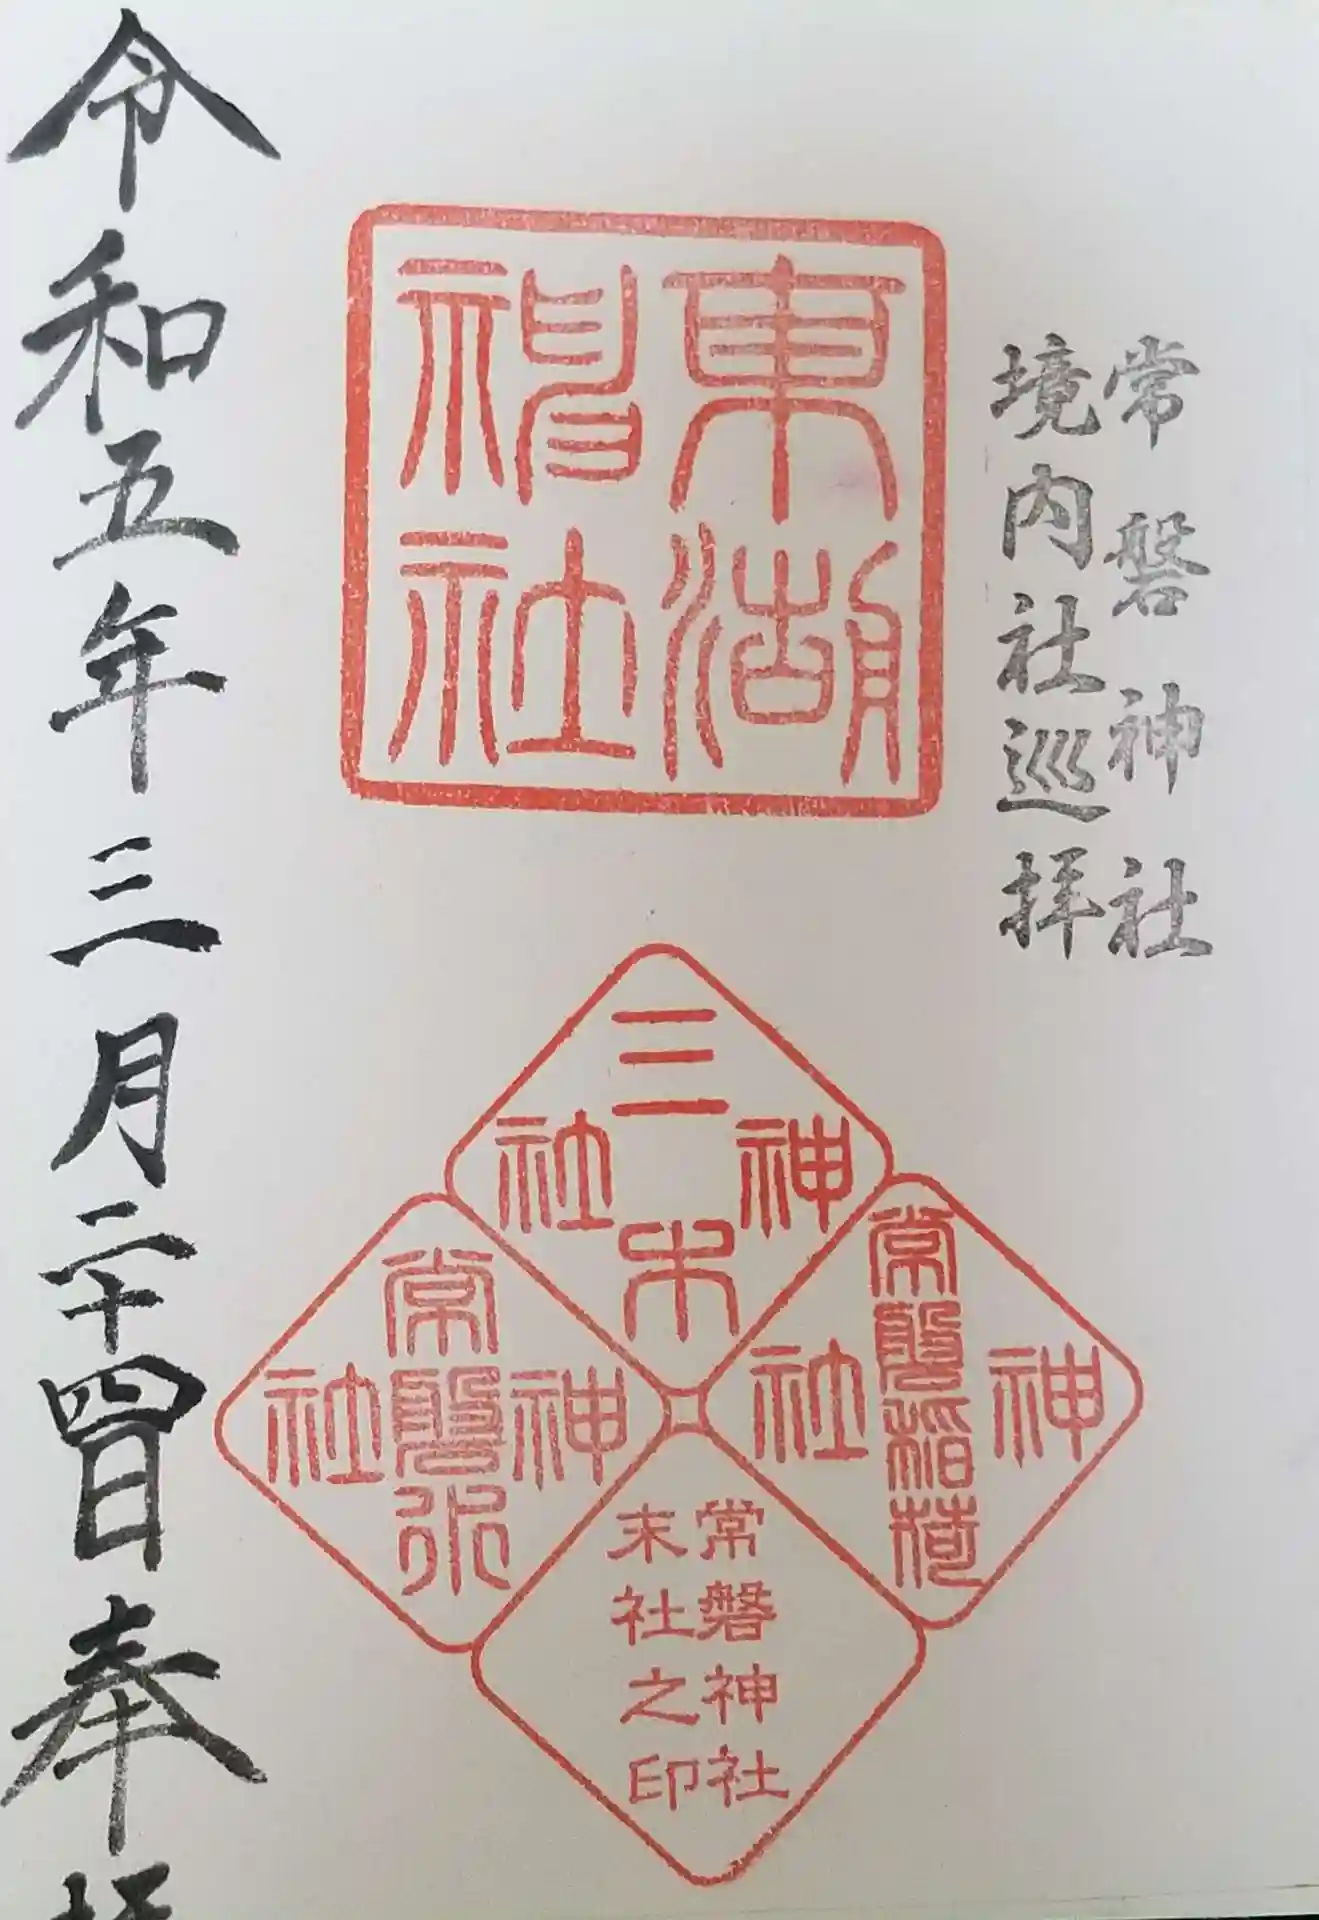 常磐神社
境内社巡拝
東湖
神社
三木神社
常磐稲荷神社
常磐水神社
常磐神社
末社之印
令和五年三月二十四日奉拝